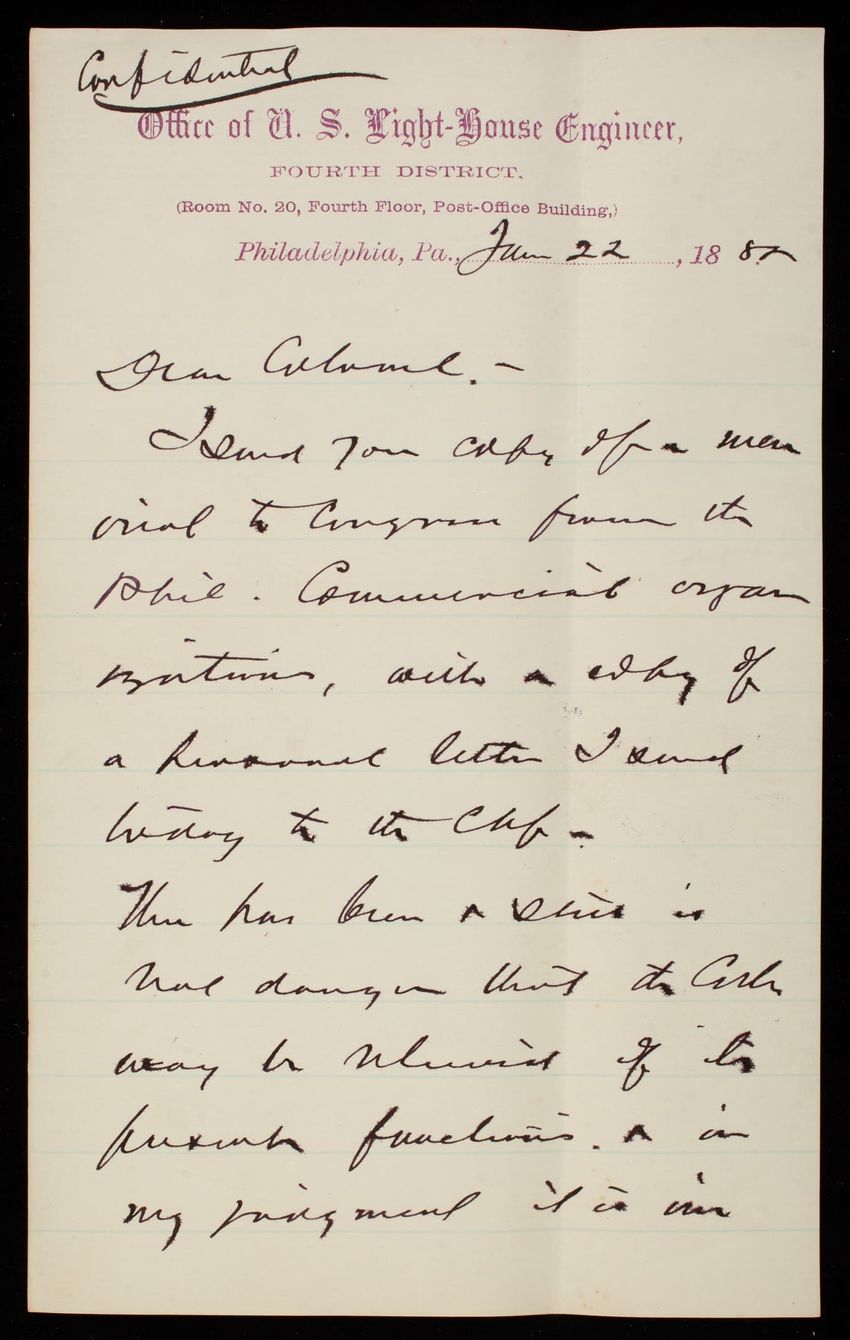 Confidential
Office of U. S. Light-House Engineer,
FOURTH DISTRICT.
(Room No. 20, Fourth Floor, Post-Office Building,)
Philadelphia, Pa., Jan 22, 188
Dear Colonel. -
I send you copy of a mem
orial to Congress from the
Phil. Commercial organ
izations, with a copy of
a personal letter I send
today to the Chf -
There has been & still is
real danger that the Corps
may be relieved of its
present functions. & in
my judgment it is